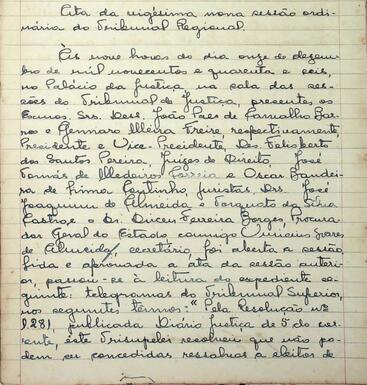 Acta da vigésima nona sessão ordi-
nária do Tribunal Regional.
Às nove horas do dia onze de dezem-
bro de mil novecentos e quarenta e seis,
no Palácio da Justiça, na sala das ses-
sões do Tribunal de Justiça, presentes os
Exmos. Srs. Des. João Paes de Carvalho Bar-
ros e Gennaro Freire, respectivamente,
Presidente e Vice-Presidente, Des. Felisberto
dos Santos Pereira, Juizes de Direito, José
Tomás de Medeiros Correia e Oscar Bandei-
ra de Lima Coutinho, juristas, Drs. José
Joaquim de Almeida e Torquato da Silva
Castro, e o Dr. Dirceu Ferreira Borges, Procura-
dor Geral do Estado, comigo Vinicius Soares
de Almeida, secretário, foi aberta a sessão.
Lida e aprovada a ata da sessão anteri-
or, passou-se à leitura do expediente se-
guinte: telegramas do Tribunal Superior,
nos seguintes termos: "Pela Resolução nº
1.281, publicada Diário Justiça de 5 do cor-
rente, este Trisupelei resolveu que não po-
dem ser concedidas ressalvas a eleitos de